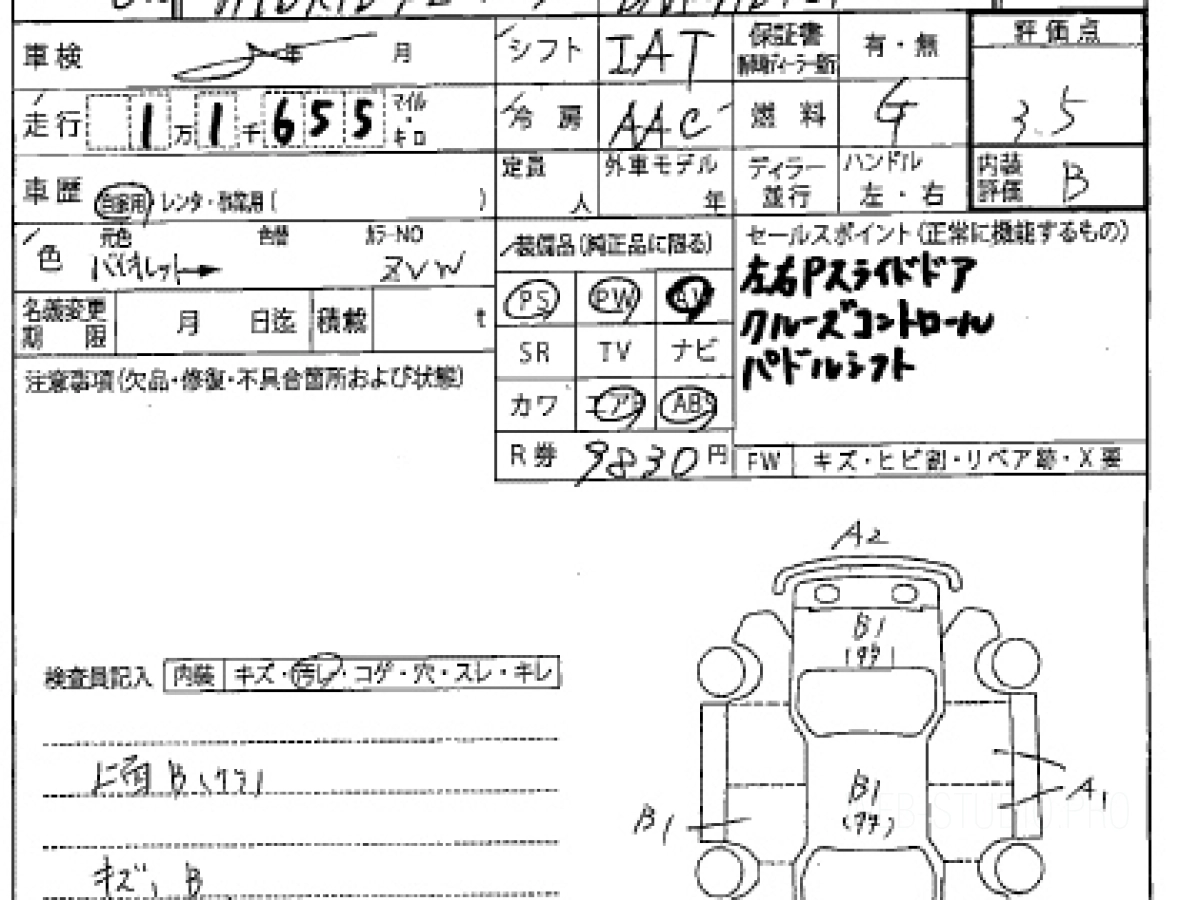 車検 年 月
シフト IAT
保証書 新車時ディーラー発行 有・無
評価点 3.5
走行 1万1千655 マイル・キロ
冷房 AAC
燃料 G
車歴 自家用 レンタ・事業用( )
定員 人
外車モデル 年
ディラー 並行
ハンドル 左・右
内装評価 B
色 元色 色替 カラーNO
バイオレット→ ZVW
装備品(純正品に限る)
PS PW
SR TV ナビ
カワ エアB ABS
R券 9830円
セールスポイント(正常に機能するもの)
左右Pスライドドア
クルーズコントロール
パドルシフト
名義変更期限 月 日迄 積載 t
注意事項(欠品・修復・不具合箇所および状態)
FW キズ・ヒビ割・リペア跡・X要
A2
B1
検査員記入 内装 キズ・汚レ・コゲ・穴・スレ・キレ
上面 B
B1
A1
B1
キズ、B